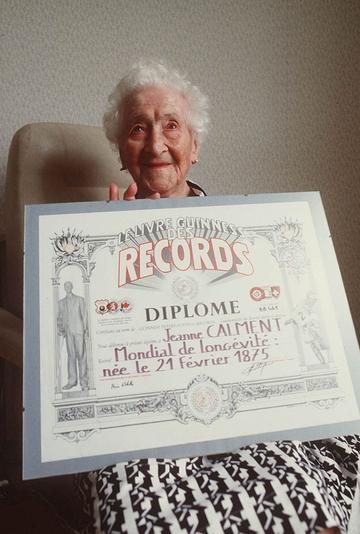 LE LIVRE GUINNESS
DES
RECORDS
DIPLOME
Jeanne CALMENT
Mondial de longévité :
née le 21 février 1875